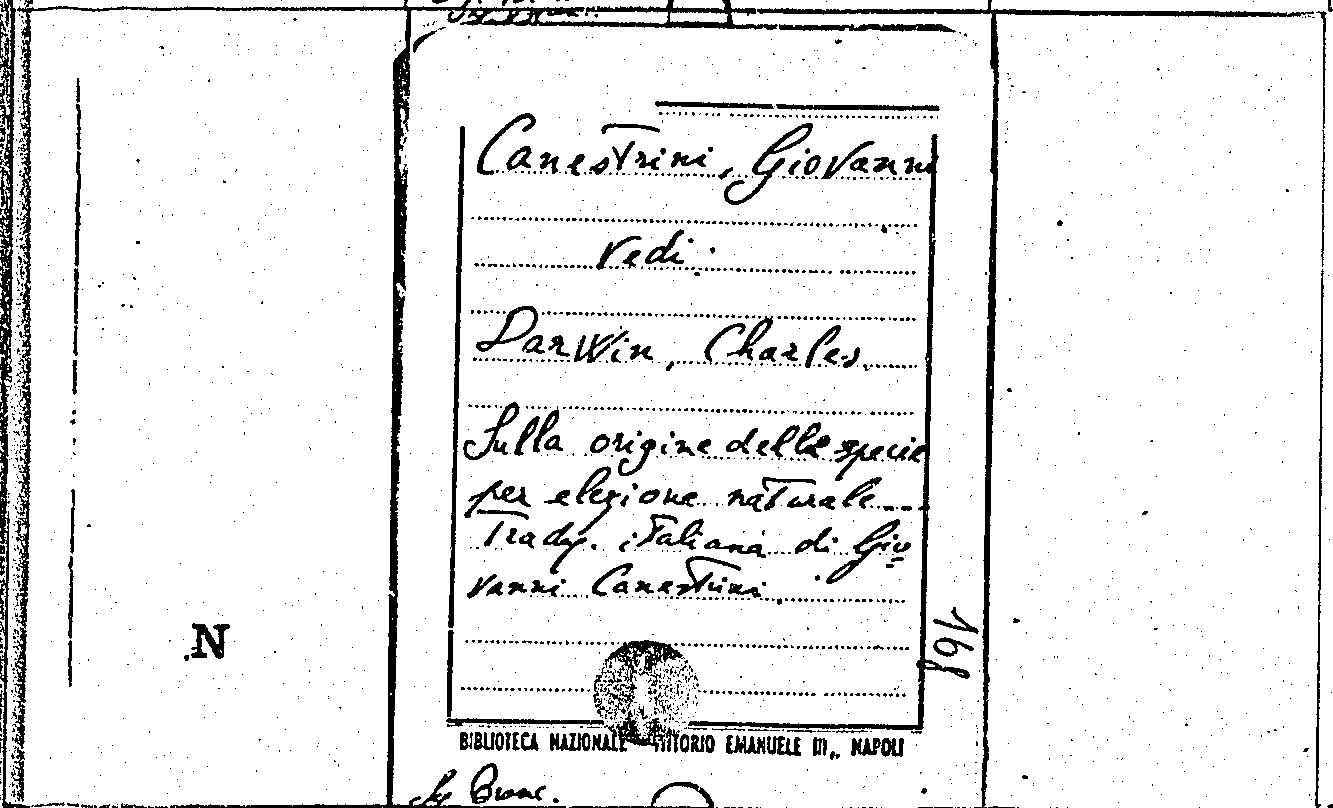 Canestrini, Giovanni
Vedi:
Darwin, Charles
Sulla origine delle specie
per elezione naturale...
Traduz. italiana di Gio
vanni Canestrini.
168
N
BIBLIOTECA NAZIONALE VITTORIO EMANUELE III,, NAPOLI